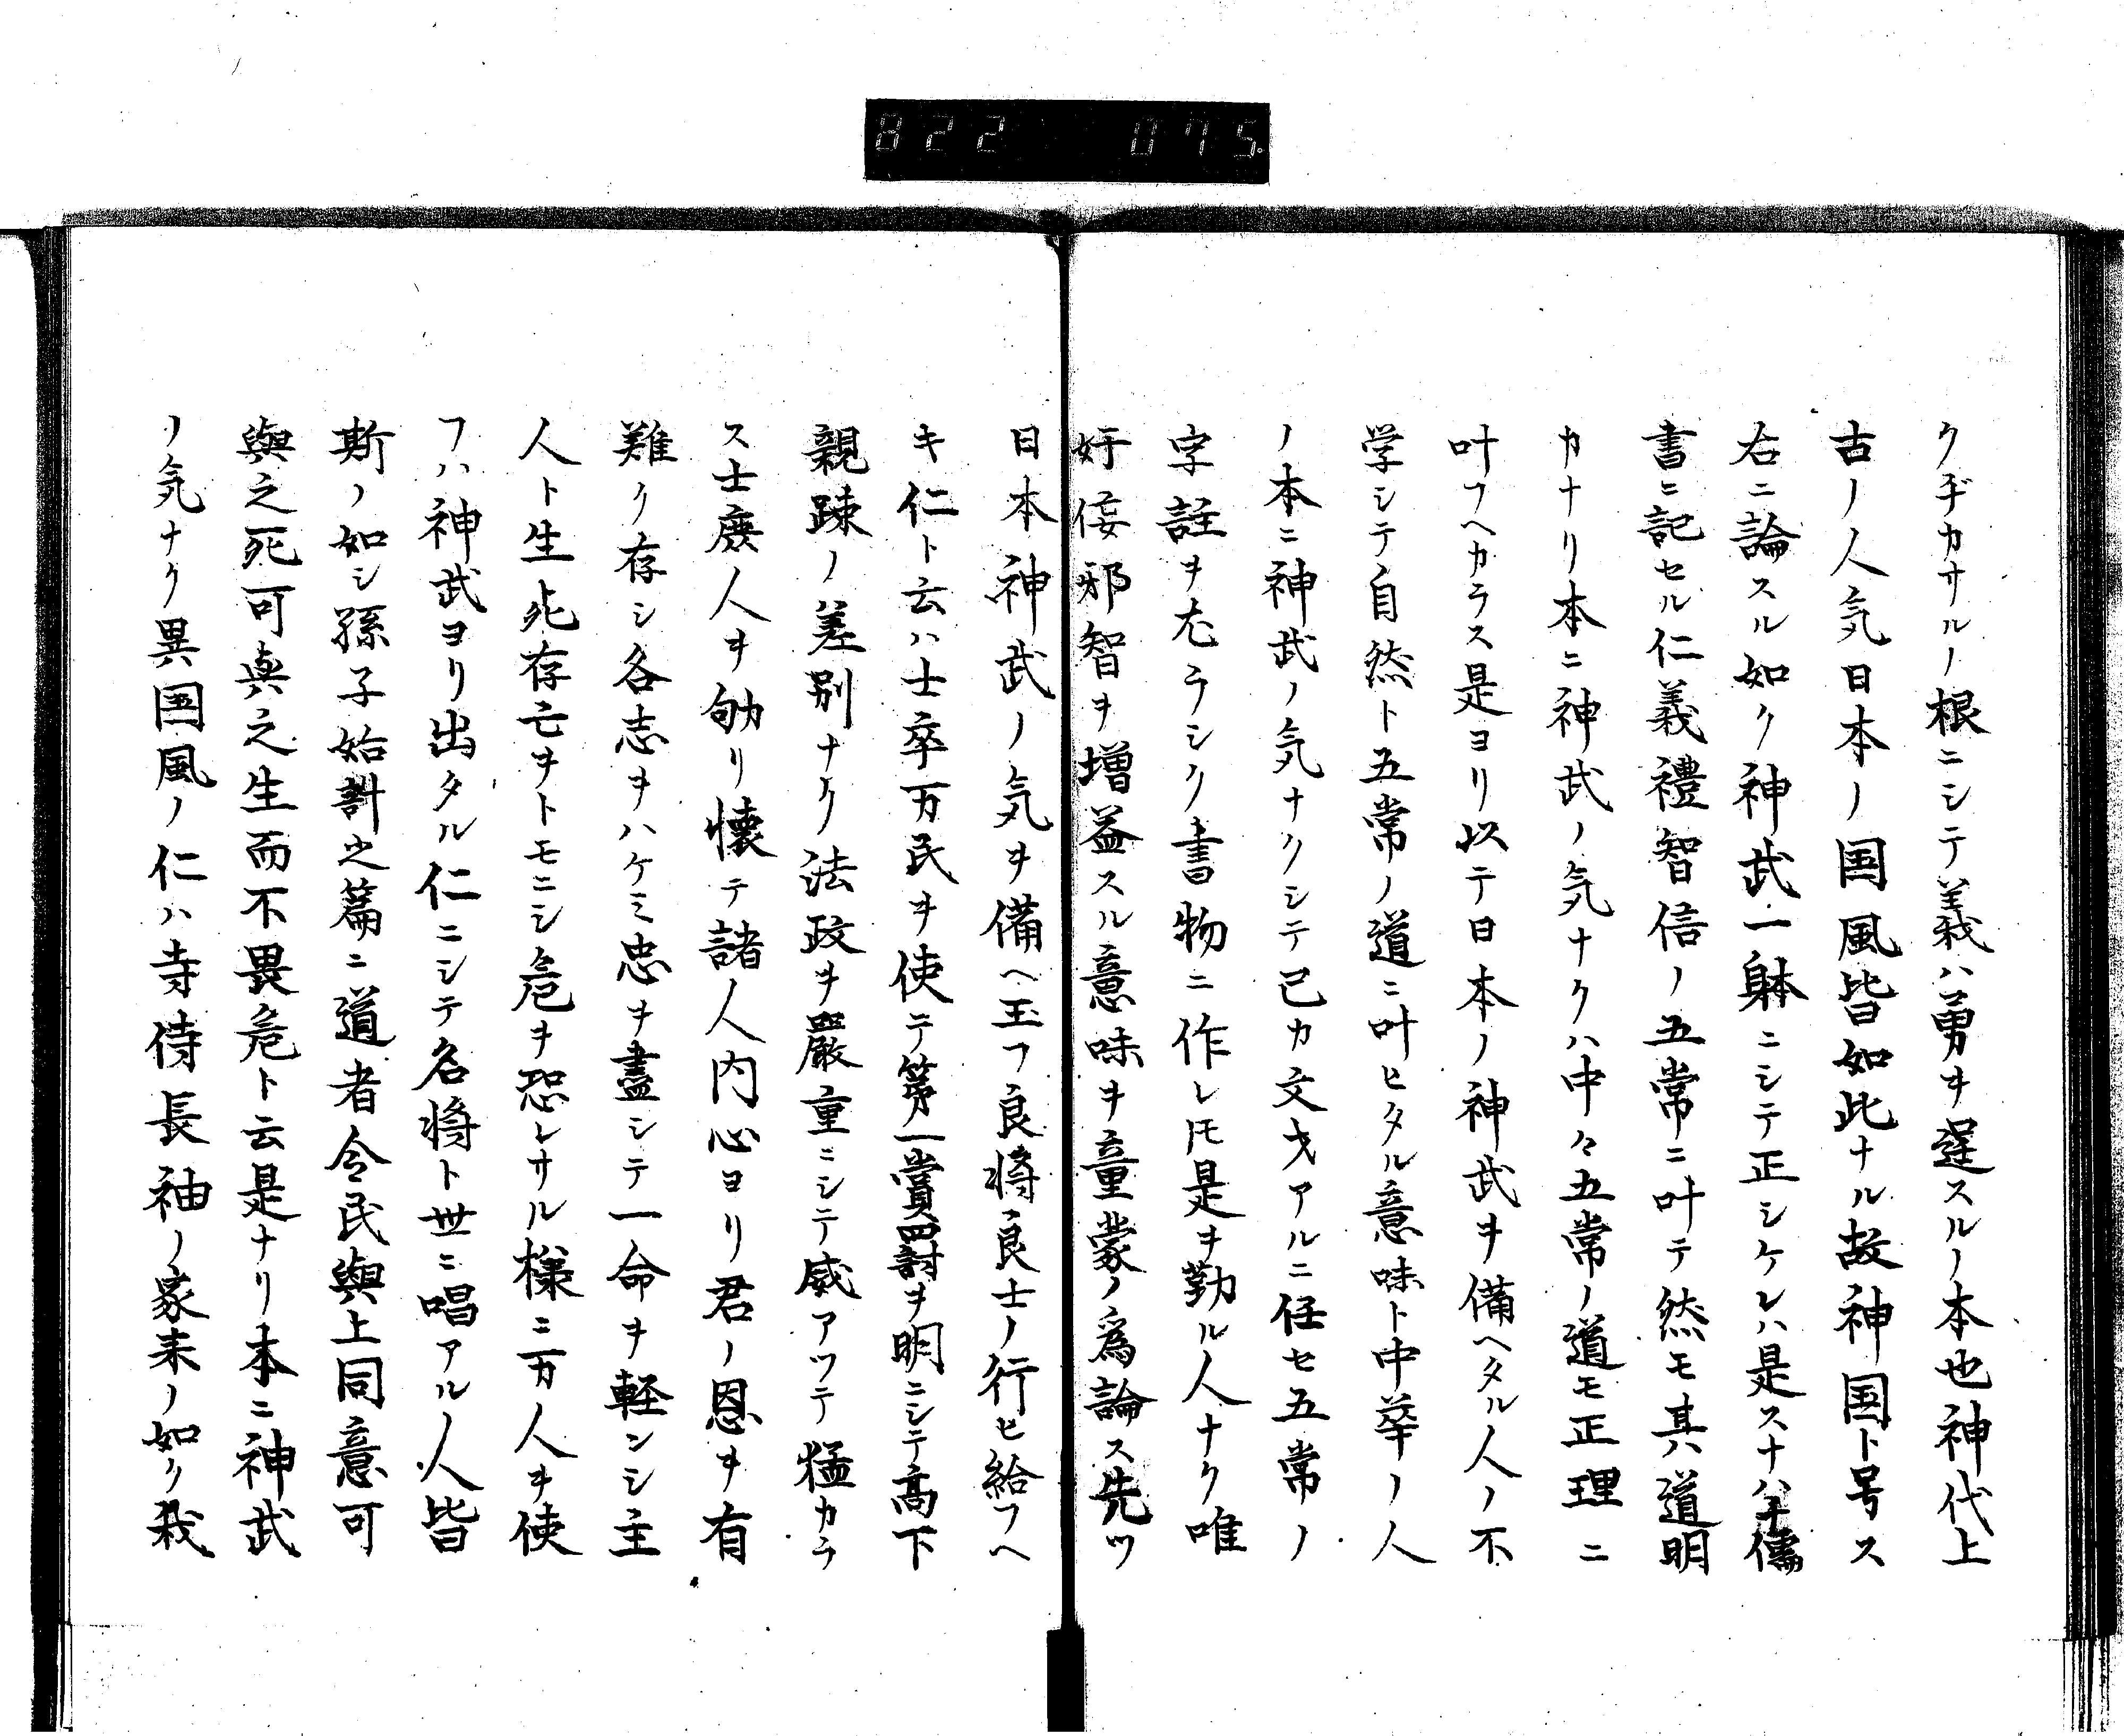 822 075
クヂカサルノ根ニシテ義ハ勇ヲ逞スルノ本也神代上
古ノ人気日本ノ国風皆如此ナル故神国ト号ス
右ニ論スル如ク神武一躰ニシテ正シケレハ是スナハチ儒
書ニ記セル仁義禮智信ノ五常ニ叶テ然モ其道明
カナリ本ニ神武ノ気ナクハ中々五常ノ道モ正理ニ
叶フヘカラス是ヨリ以テ日本ノ神武ヲ備ヘタル人ノ不
学シテ自然ト五常ノ道ニ叶ヒタル意味ト中華ノ人
ノ本ニ神武ノ気ナクシテ己カ文才アルニ任セ五常ノ
字註ヲ尤ラシク書物ニ作レ𪜈是ヲ勤ル人ナク唯
奸佞邪智ヲ増益スル意味ヲ童蒙ノ為論ス先ツ
日本神武ノ気ヲ備ヘ玉フ良将良士ノ行ヒ給フヘ
キ仁ト云ハ士卒万民ヲ使テ第一賞罰ヲ明ニシテ高下
親疎ノ差別ナク法政ヲ嚴重ニシテ威アツテ猛カラ
ス士庶人ヲ劬リ懐テ諸人内心ヨリ君ノ恩ヲ有
難ク存シ各志ヲハケミ忠ヲ盡シテ一命ヲ軽ンシ主
人ト生死存亡ヲトモニシ危ヲ恐レサル様ニ万人ヲ使
フハ神武ヨリ出タル仁ニシテ名将ト世ニ唱アル人皆
斯ノ如シ孫子始計之篇ニ道者令民與上同意可
與之死可與之生而不畏危ト云是ナリ本ニ神武
ノ気ナク異国風ノ仁ハ寺侍長袖ノ家来ノ如ク我